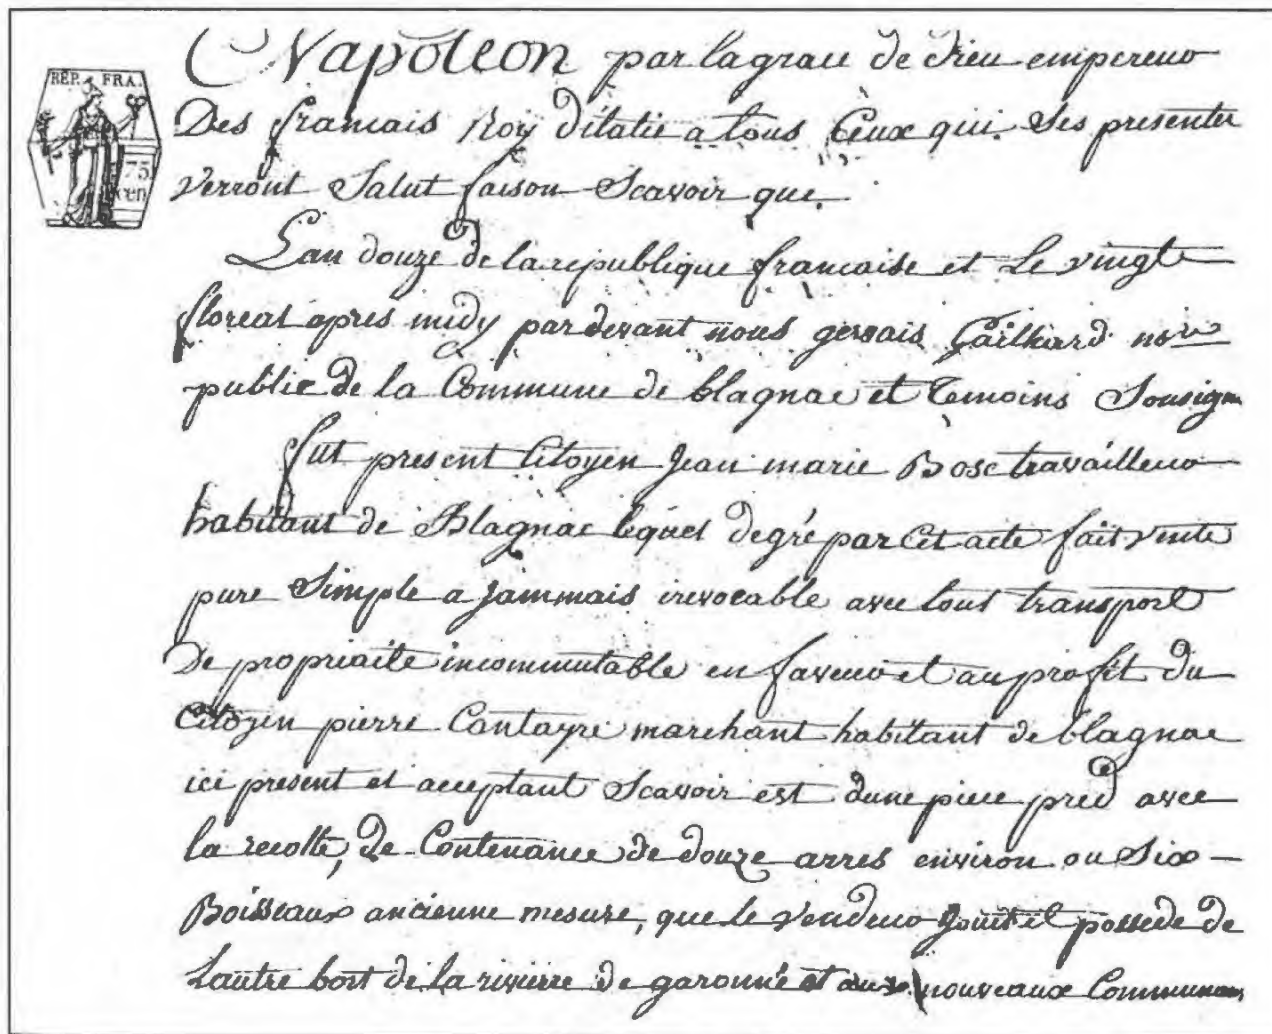 Napoleon par la grace de dieu empereur
REP. FRA.
Des francais Roy ditalie a tous Ceux qui Ses presenter
75
cen
Verront Salut faison Scavoir que.
Lan douze de la republique francaise et Le vingt
floreal apres midy pardevant nous gervais Cailhard nore
public de la Commune de blagnac et Temoins Sousign
fut present Citoyen Jean marie Bosc travailleur
habitant de Blagnac lequel degré par Cet acte fait vente
pure Simple a Jammais irevocable avec tout transport
De propriaité incommutable en faveur et au profit du
Citoyen pierre Cantayre marchant habitant de blagnac
ici present et acceptant Scavoir est dune piece pred avec
la recolte, De Contenance de douze arres environ ou Six
Boisseaux ancienne mesure, que le Vendeur Jouit et possede de
Lautre bort de la riviere de garonne et nouveaux Communaux